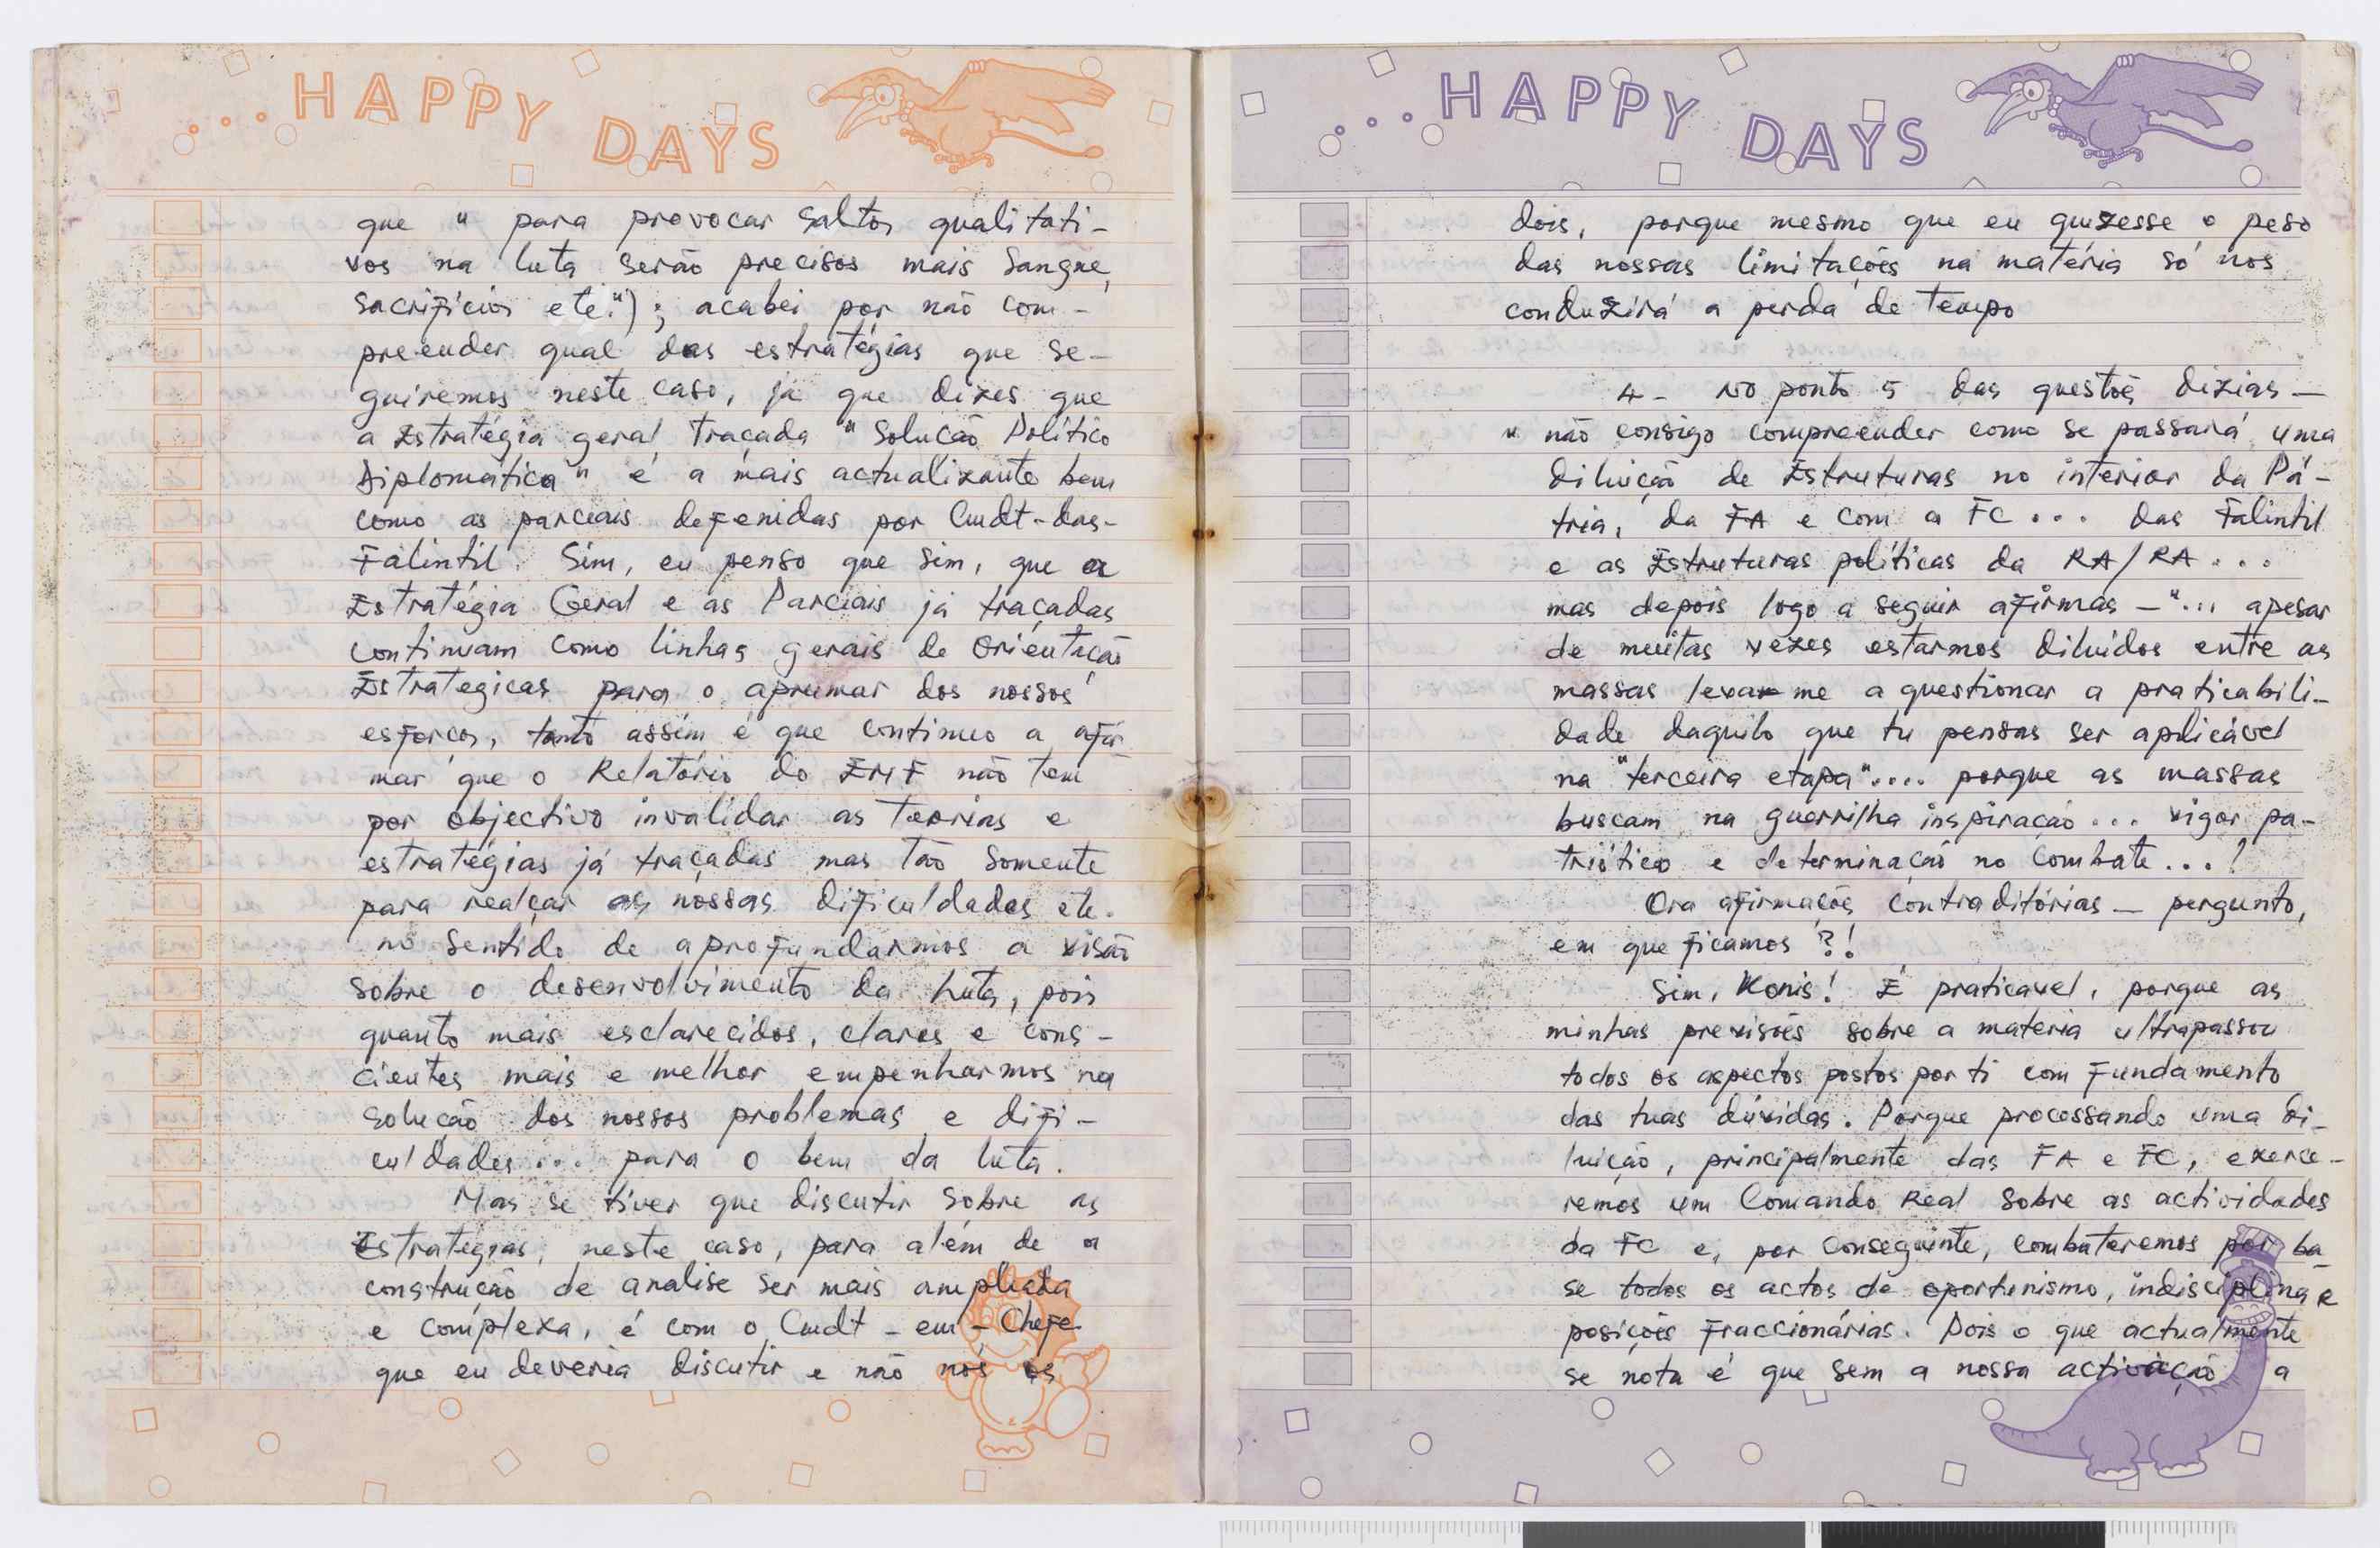 ...HAPPY DAYS
que " para provocar saltos qualitati-
vos na luta serão precisos mais sangue,
sacrifícios etc."); acabei por não com-
preender qual das estratégias que se-
guiremos neste caso, já que dizes que
a Estratégia geral traçada "Solução Político
Diplomática" é a mais actualizante bem
como as parciais defenidas por Cmdt-das-
Falintil. Sim, eu penso que sim, que a
Estratégia Geral e as Parciais já traçadas
continuam como linhas gerais de Orientação
Estrategicas para o aprumar dos nossos
esforços, tanto assim é que continuo a afir
mar que o Relatório do EMF não tem
por objectivo invalidar as Teorias e
estratégias já traçadas mas tão somente
para realçar as nossas dificuldades etc.
no sentido de aprofundarmos a visão
sobre o desenvolvimento da luta, pois
quanto mais esclarecidos, claros e cons-
cientes mais e melhor empenharmos na
solução dos nossos problemas e difi-
culdades.... para o bem da luta.
Mas se tiver que discutir sobre as
Estrategias, neste caso, para além de a
construção de analise ser mais ampliada
e complexa, é com o Cmdt-em-Chefe
que eu deveria discutir e não nós os
...HAPPY DAYS
dois, porque mesmo que eu quizesse o peso
das nossas limitações na matéria só nos
conduzirá a perda de tempo
4- No ponto 5 das questões dizias —
" não consigo compreender como se passará uma
diluição de Estruturas no interior da Pá-
tria, da FA e com a FC... das Falintil
e as Estruturas políticas da RA/RA...
mas depois logo a seguir afirmas —"... apesar
de muitas vezes estarmos diluídos entre as
massas levam me a questionar a praticabili-
dade daquilo que tu pensas ser aplicável
na "terceira etapa".... porque as massas
buscam na guerrilha inspiração... vigor pa-
triótico e determinação no combate...!
Ora afirmações contraditórias — pergunto,
em que ficamos ?!
Sim, Konis! É praticavel, porque as
minhas previsões sobre a materia ultrapassou
todos os aspectos postos por ti com fundamento
das tuas dúvidas. Porque processando uma di-
luição, principalmente das FA e FC, exerce-
remos um Comando Real sobre as actividades
da FC e, por conseguinte, combateremos por ba
se todos os actos de oportunismo, indisciplina e
posições fraccionárias. Pois o que actualmente
se nota é que sem a nossa activação a